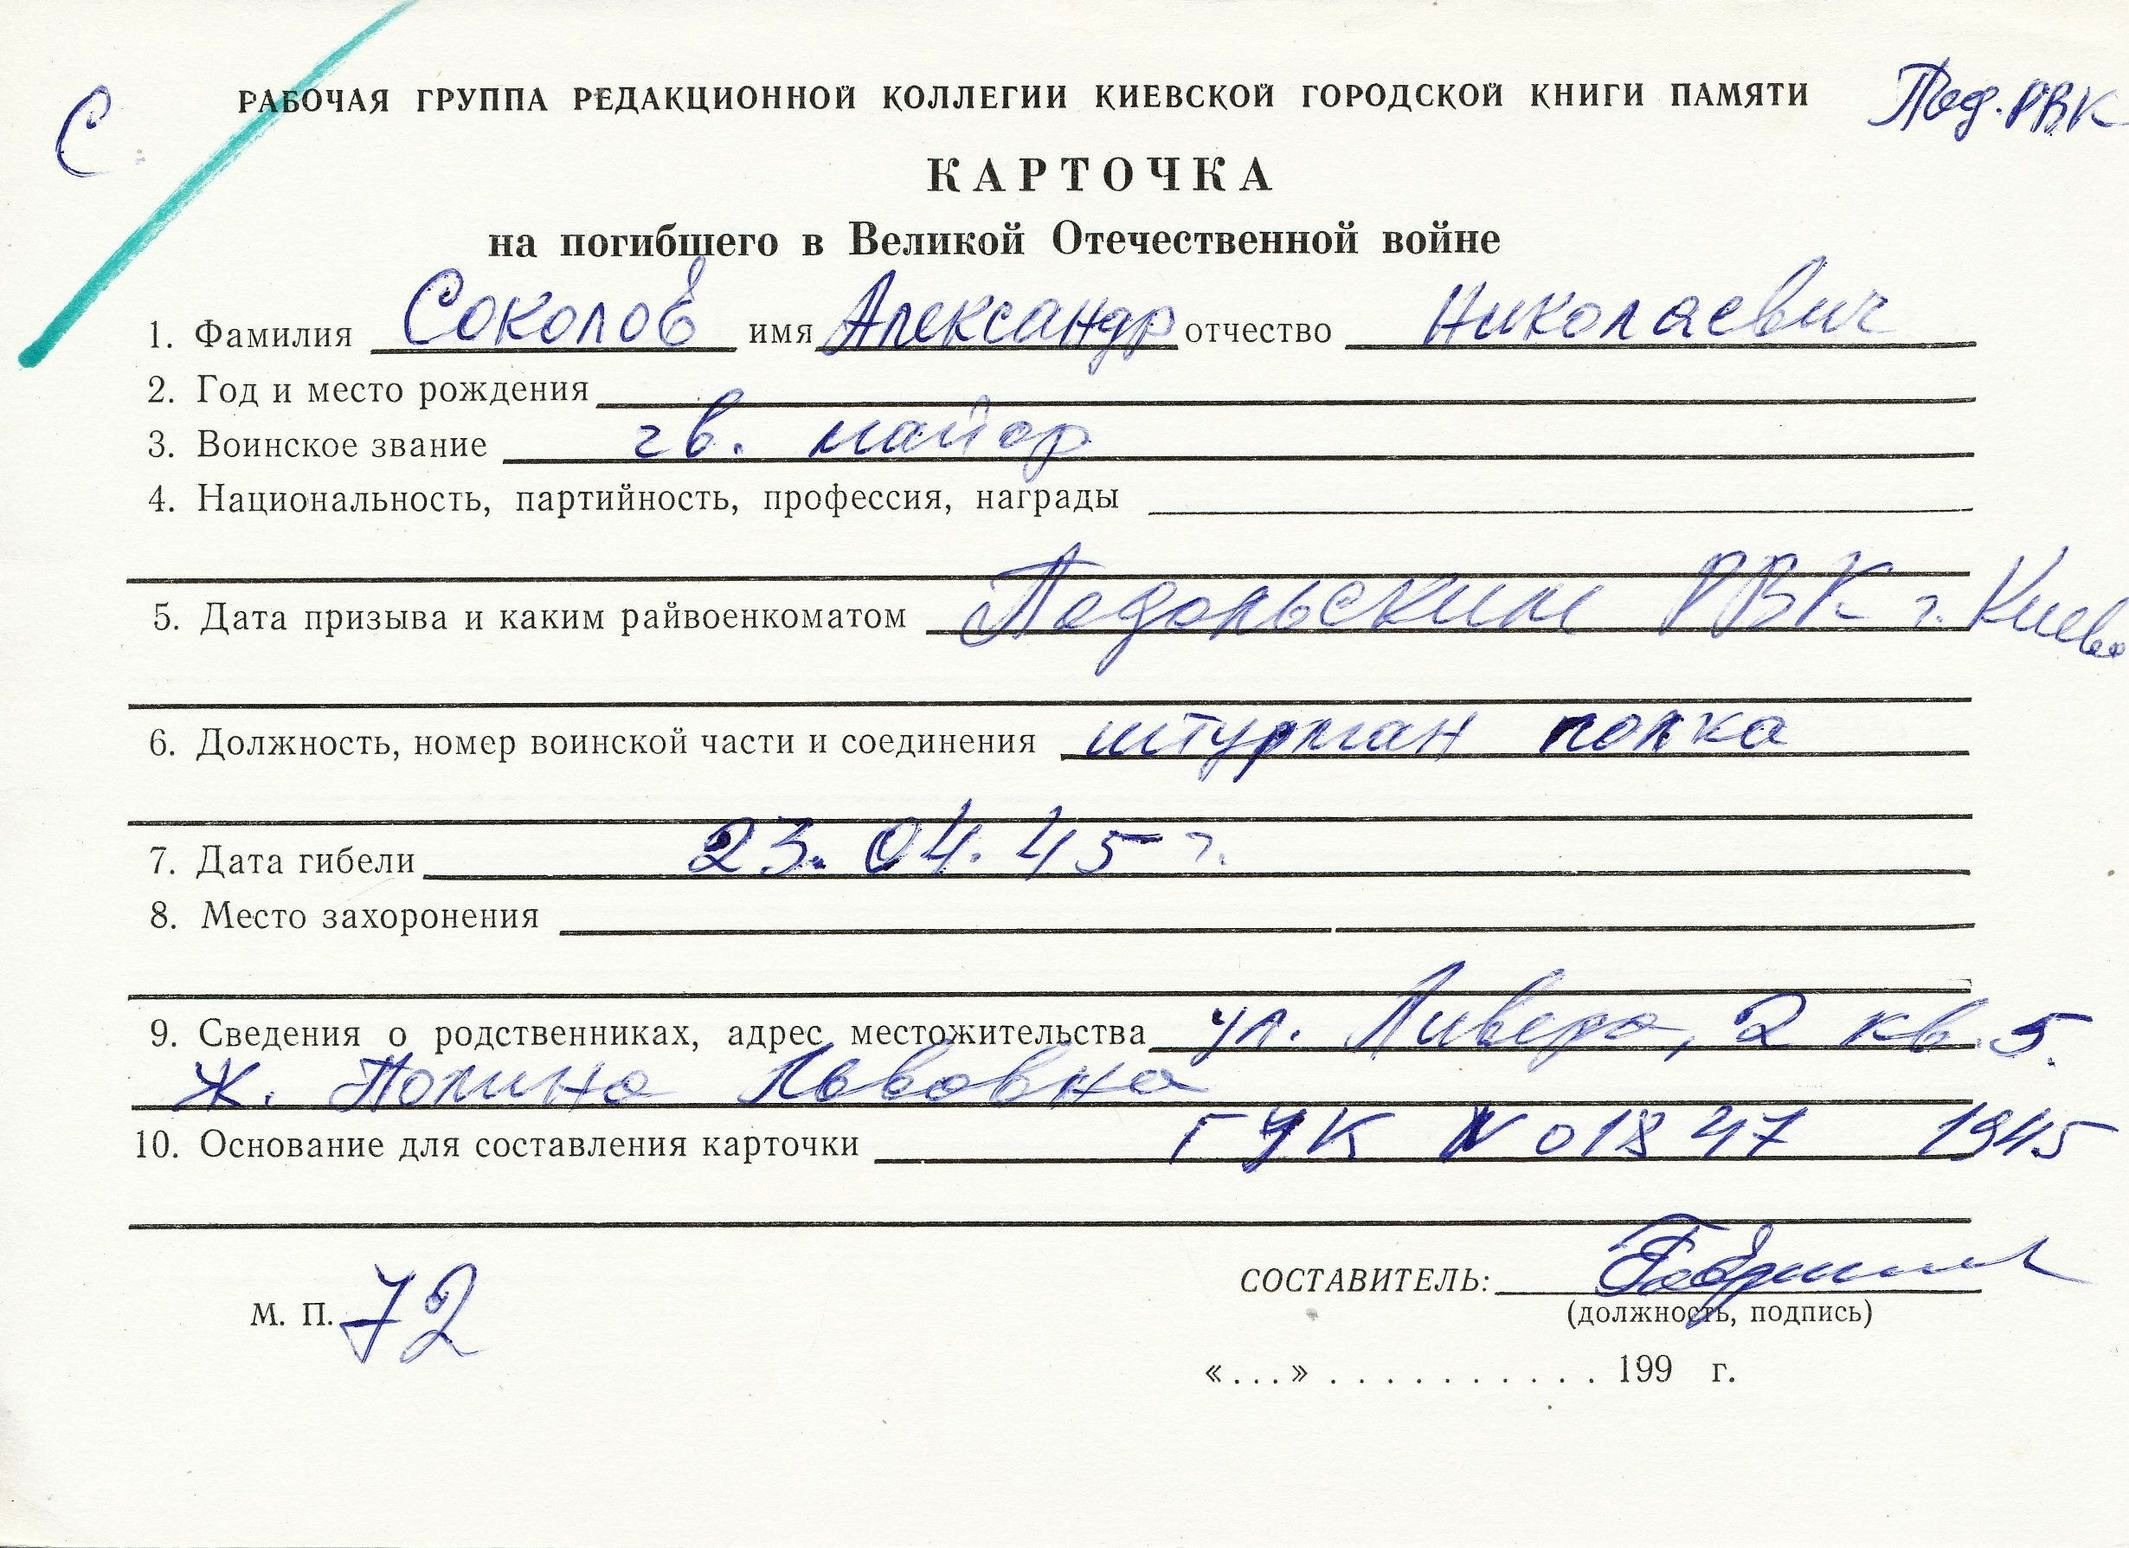 С. РАБОЧАЯ ГРУППА РЕДАКЦИОННОЙ КОЛЛЕГИИ КИЕВСКОЙ ГОРОДСКОЙ КНИГИ ПАМЯТИ Под. РВК
КАРТОЧКА
на погибшего в Великой Отечественной войне
1. Фамилия Соколов имя Александр отчество Николаевич
2. Год и место рождения
3. Воинское звание гв. майор
4. Национальность, партийность, профессия, награды
5. Дата призыва и каким райвоенкоматом Подольским РВК г. Киева
6. Должность, номер воинской части и соединения штурман полка
7. Дата гибели 23.04.45 г.
8. Место захоронения
9. Сведения о родственниках, адрес местожительства ул. 2 кв. 5.
ж. Полина Львовна
10. Основание для составления карточки ГУК N 01847 1945
СОСТАВИТЕЛЬ:
М. П. 72 (должность, подпись)
«...» .......... 199 г.